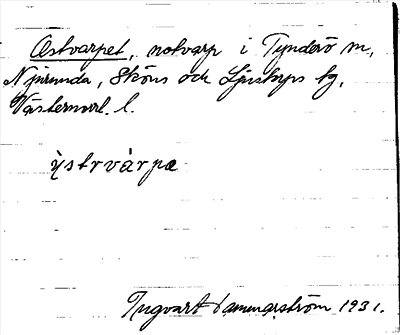 Östvarpet, notvarp i Tynderö m,
Njurunda, Sköns och Ljustorps tg,
Västernorrl. l.
ỳstrvàrpæ
Ingvart Dammerström 1931.